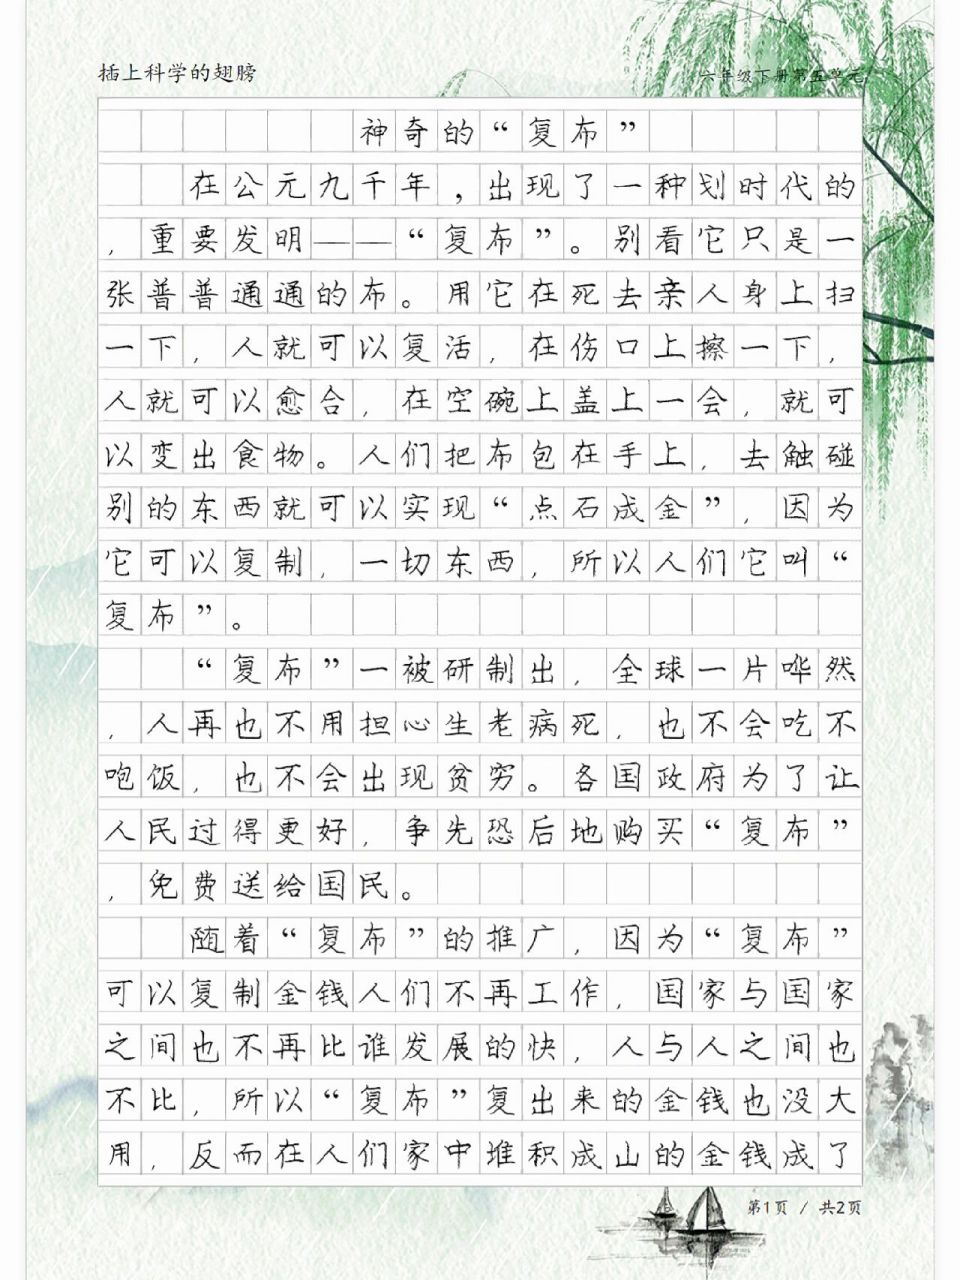 插上科学的翅膀
六年级下册第五单元
神奇的“复布”
在公元九千年，出现了一种划时代的
，重要发明——“复布”。别看它只是一
张普普通通的布。用它在死去亲人身上扫
一下，人就可以复活，在伤口上擦一下，
人就可以愈合，在空碗上盖上一会，就可
以变出食物。人们把布包在手上，去触碰
别的东西就可以实现“点石成金”，因为
它可以复制，一切东西，所以人们它叫“
复布”。
“复布”一被研制出，全球一片哗然
，人再也不用担心生老病死，也不会吃不
咆饭，也不会出现贫穷。各国政府为了让
人民过得更好，争先恐后地购买“复布”
，免费送给国民。
随着“复布”的推广，因为“复布”
可以复制金钱人们不再工作，国家与国家
之间也不再比谁发展的快，人与人之间也
不比，所以“复布”复出来的金钱也没大
用，反而在人们家中堆积成山的金钱成了
第1页 / 共2页